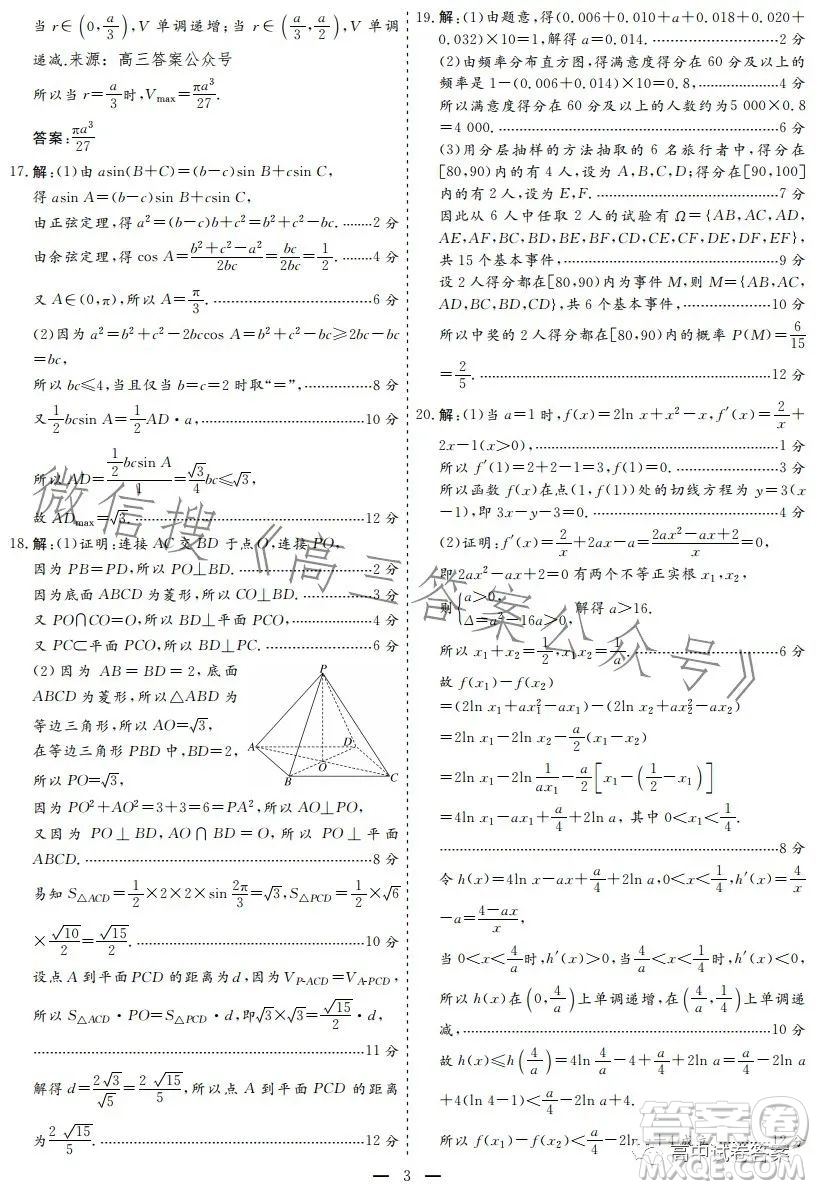 当 r∈(0, a/3), V 单调递增;当 r∈(a/3, a/2), V 单调
递减.来源: 高三答案公众号
所以当 r=a/3时,Vmax=πa³/27.
答案:πa³/27
17.解:(1)由 asin(B+C)=(b-c)sin B+csin C,
得 asin A=(b-c)sin B+csin C,
由正弦定理,得 a²=(b-c)b+c²=b²+c²-bc. ……2 分
由余弦定理,得 cos A=(b²+c²-a²)/2bc=bc/2bc=1/2. ……4 分
又 A∈(0,π),所以 A=π/3. ……6 分
(2)因为 a²=b²+c²-2bccos A=b²+c²-bc≥2bc-bc
=bc,
所以 bc≤4,当且仅当 b=c=2 时取“=”, ……8 分
又1/2bcsin A=1/2AD·a, ……10 分
所以 AD=(1/2bcsin A)/1=√3/4bc≤√3,
故 ADmax=√3. ……12 分
18.解:(1)证明:连接 AC 交 BD 于点 O,连接 PO,
因为 PB=PD,所以 PO⊥BD. ……2 分
因为底面 ABCD 为菱形,所以 CO⊥BD. ……3 分
又 PO∩CO=O,所以 BD⊥平面 PCO, ……4 分
又 PC⊂平面 PCO,所以 BD⊥PC. ……6 分
(2)因为 AB=BD=2,底面
ABCD 为菱形,所以△ABD 为
等边三角形,所以 AO=√3,
在等边三角形 PBD 中,BD=2,
所以 PO=√3,
P
A
D
O
B
C
因为 PO²+AO²=3+3=6=PA²,所以 AO⊥PO,
又因为 PO⊥BD,AO∩BD=O,所以 PO⊥平面
ABCD. ……8 分
易知 S△ACD=1/2×2×2×sin 2π/3=√3,S△PCD=1/2×√6
×√10/2=√15/2. ……10 分
设点 A 到平面 PCD 的距离为 d,因为 VP-ACD=VA-PCD,
所以 S△ACD·PO=S△PCD·d,即√3×√3=√15/2·d,
……11 分
解得 d=2√3/√5=2√15/5,所以点 A 到平面 PCD 的距离
为2√15/5. ……12 分
19.解:(1)由题意,得(0.006+0.010+a+0.018+0.020+
0.032)×10=1,解得 a=0.014. ……2 分
(2)由频率分布直方图,得满意度得分在 60 分及以上的
频率是 1-(0.006+0.014)×10=0.8, ……4 分
所以满意度得分在 60 分及以上的人数约为 5 000×0.8
=4 000. ……6 分
(3)用分层抽样的方法抽取的 6 名旅行者中,得分在
[80,90)内的有 4 人,设为 A,B,C,D;得分在[90,100]
内的有 2 人,设为 E,F. ……7 分
因此从 6 人中任取 2 人的试验有 Ω={AB,AC,AD,
AE,AF,BC,BD,BE,BF,CD,CE,CF,DE,DF,EF},
共 15 个基本事件, ……9 分
设 2 人得分都在[80,90)内为事件 M,则 M={AB,AC,
AD,BC,BD,CD},共 6 个基本事件, ……10 分
所以中奖的 2 人得分都在[80,90)内的概率 P(M)=6/15
=2/5. ……12 分
20.解:(1)当 a=1 时,f(x)=2ln x+x²-x,f′(x)=2/x+
2x-1(x>0), ……1 分
所以 f′(1)=2+2-1=3,f(1)=0.
所以函数 f(x)在点(1,f(1))处的切线方程为 y=3(x
-1),即 3x-y-3=0. ……4 分
(2)证明:f′(x)=2/x+2ax-a=(2ax²-ax+2)/x=0,
即 2ax²-ax+2=0 有两个不等正实根 x₁,x₂,
则{a>0, Δ=a²-16a>0, 解得 a>16.
所以 x₁+x₂=1/2,x₁x₂=1/a. ……6 分
故 f(x₁)-f(x₂)
=(2ln x₁+ax₁²-ax₁)-(2ln x₂+ax₂²-ax₂)
=2ln x₁-2ln x₂-a/2(x₁-x₂)
=2ln x₁-2ln 1/ax₁-a/2[x₁-(1/2-x₁)]
=4ln x₁-ax₁+a/4+2ln a, 其中 0<x₁<1/4.
……8 分
令 h(x)=4ln x-ax+a/4+2ln a,0<x<1/4,h′(x)=4/x
-a=(4-ax)/x,
当 0<x<4/a时,h′(x)>0,当4/a<x<1/4时,h′(x)<0,
所以 h(x)在(0,4/a)上单调递增,在(4/a,1/4)上单调递
减, ……10 分
故 h(x)≤h(4/a)=4ln 4/a-4+a/4+2ln a=a/4-2ln a
+4(ln 4-1)<a/4-2ln a+4.
所以 f(x₁)-f(x₂)<a/4-2ln a+4 ……12 分
— 3 —
微信搜《高三答案公众号》
高中试卷答案
答案圈
MXQE.COM